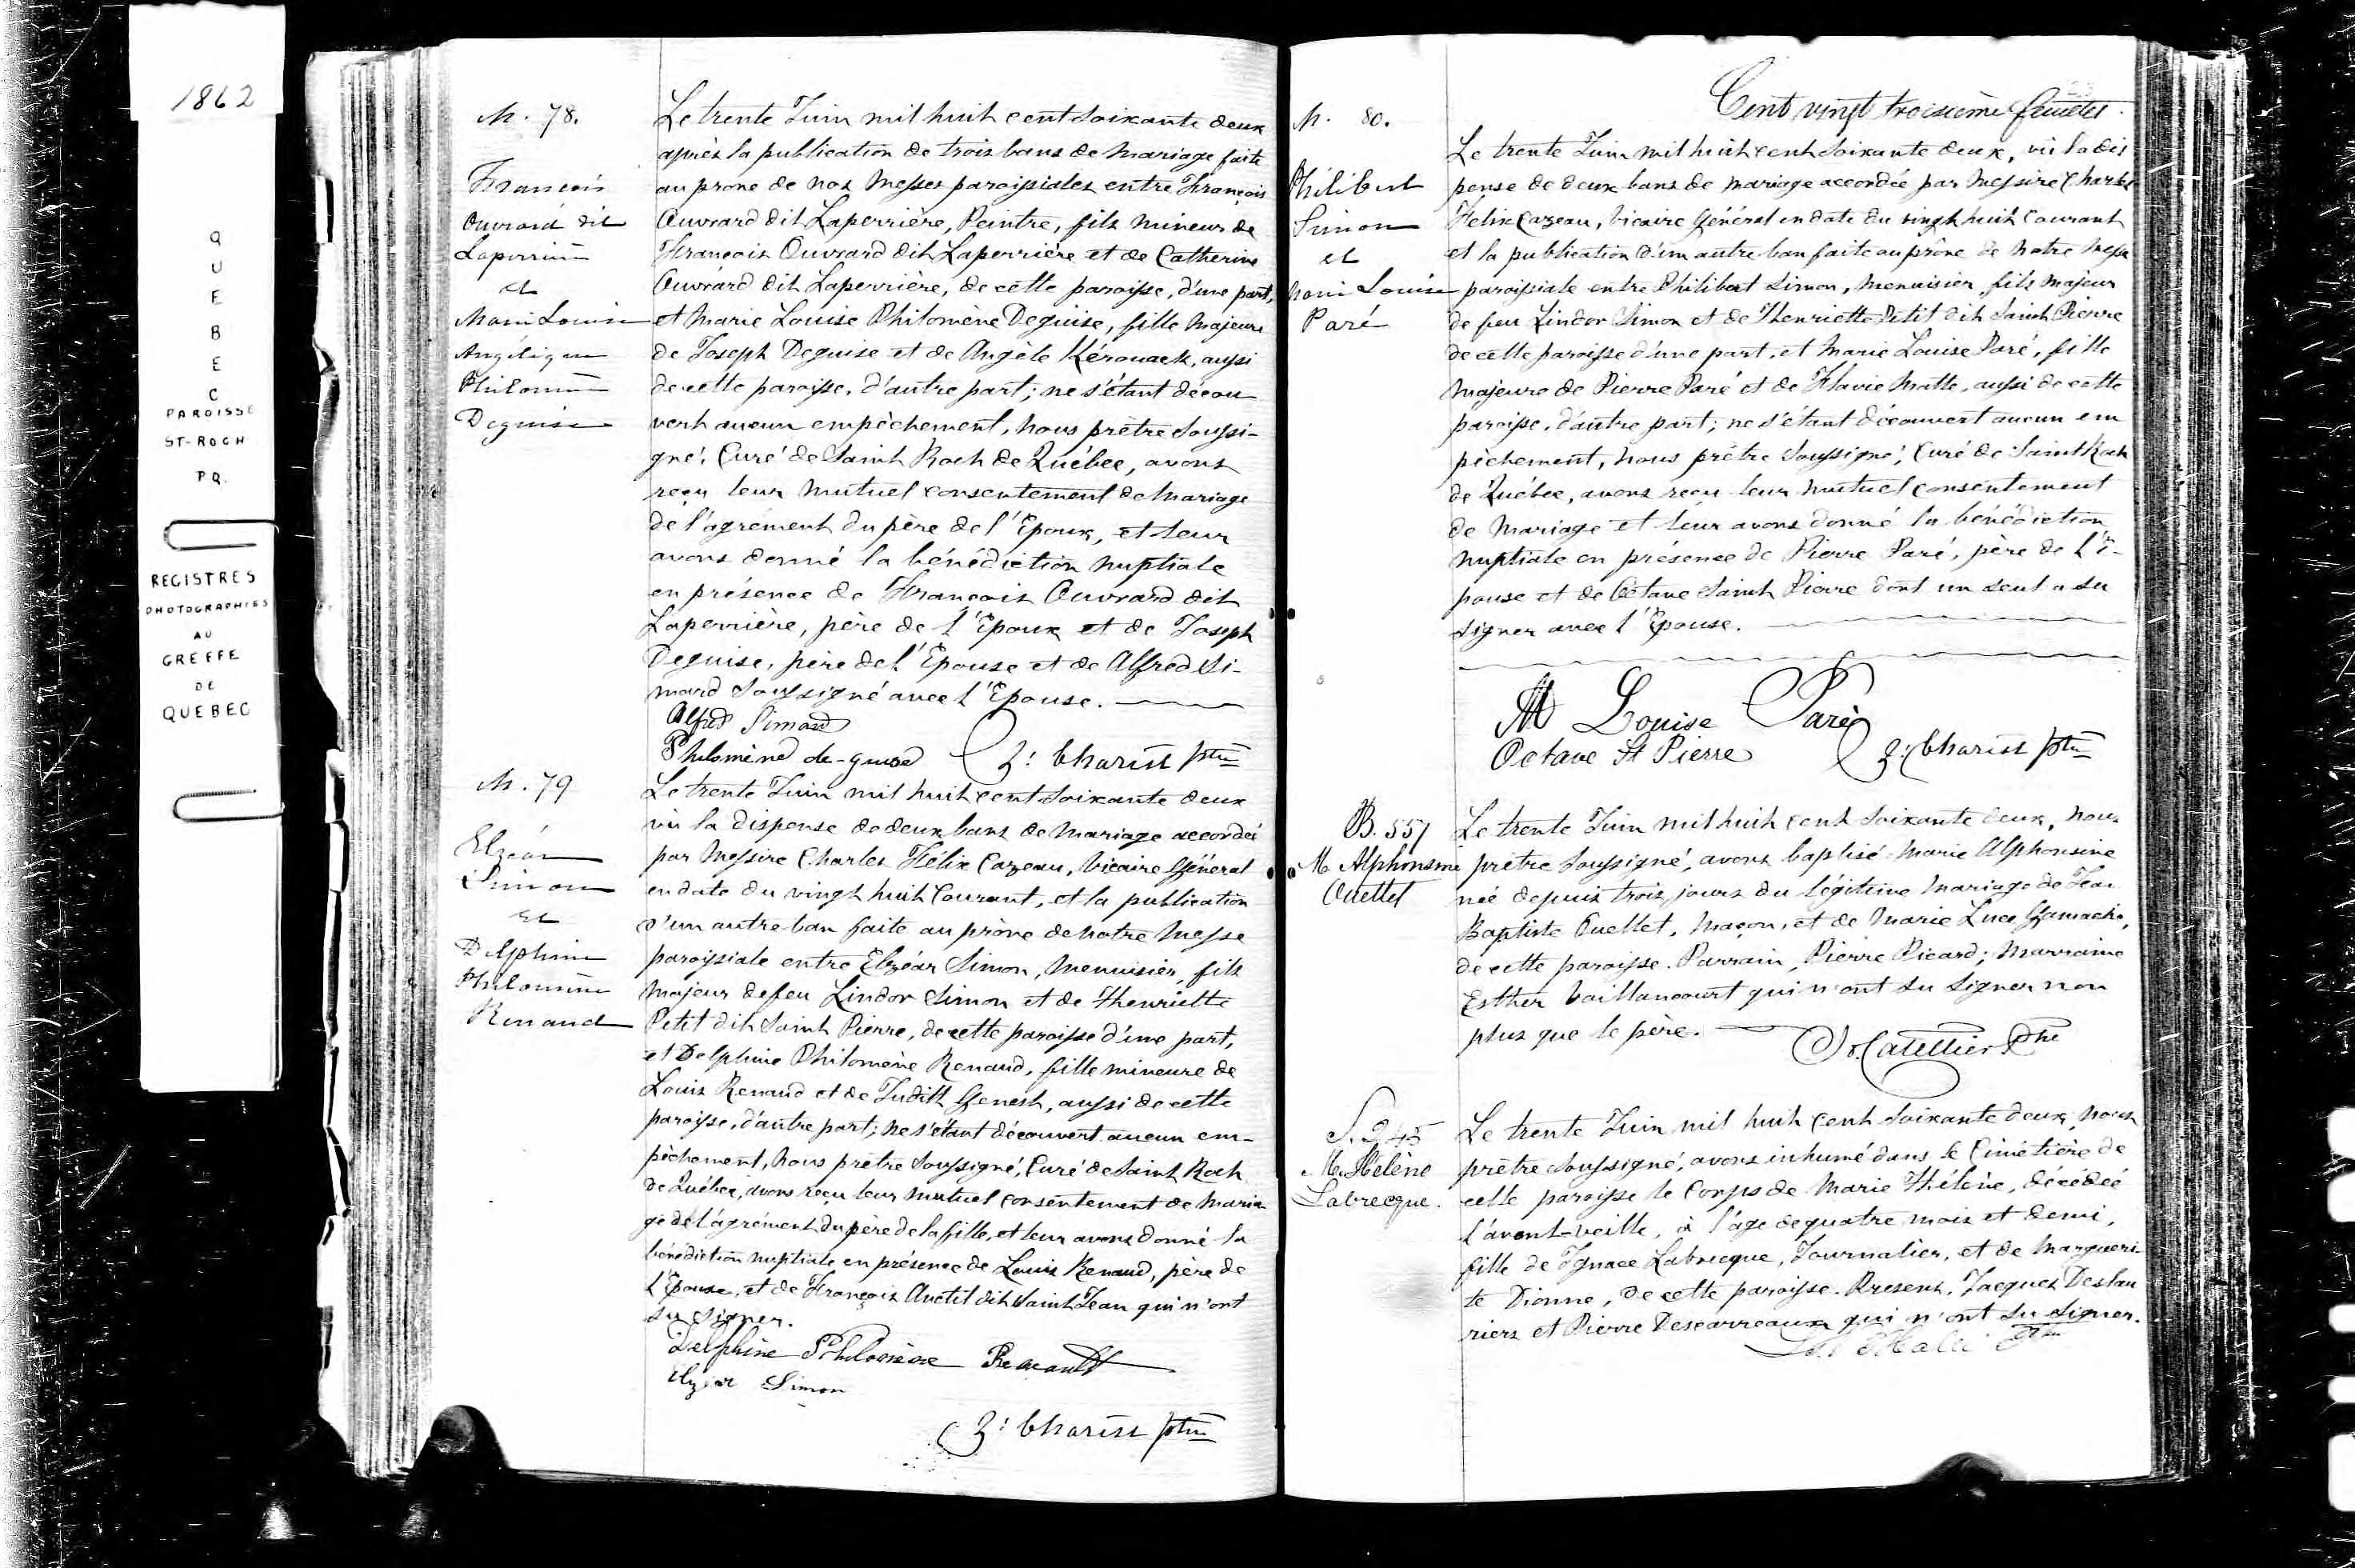 1862
QUEBEC
PAROISSE
ST-ROCH
P.Q.
REGISTRES
PHOTOGRAPHIES
AU
GREFFE
DE
QUEBEC
M. 78.
François
Ouvrard dit
Laperrière
et
Marie Louise
Angélique
Philomène
Deguise
Le trente Juin mil huit cent soixante deux
après la publication de trois bans de mariage faite
au prone de nos Messes paroissiales entre François
Ouvrard dit Laperrière, Peintre, fils mineur de
François Ouvrard dit Laperrière et de Catherine
Ouvrard dit Laperrière, de cette paroisse, d'une part,
et Marie Louise Philomène Deguise, fille majeure
de Joseph Deguise et de Angèle Kérouack, aussi
de cette paroisse, d'autre part; ne s'étant décou
vert aucun empêchement, nous prêtre soussi-
gné, Curé de Saint Roch de Québec, avons
reçu leur mutuel consentement de mariage
de l'agrément du père de l'Epoux, et leur
avons donné la bénédiction nuptiale
en présence de François Ouvrard dit
Laperrière, père de l'Epoux et de Joseph
Deguise, père de l'Epouse et de Alfred Si-
mard soussigné avec l'Epouse.
Alfred Simard
Philomène de-guise Z: Charest ptre
M. 79
Elzéar
Simon
et
Delphine
Philomène
Renaud
Le trente Juin mil huit cent soixante deux
vû la dispense de deux bans de mariage accordée
par Messire Charles Félix Cazeau, Vicaire Général
en date du vingt huit Courant, et la publication
d'un autre ban faite au prône de notre Messe
paroissiale entre Elzéar Simon, Menuisier, fils
majeur de feu Lindor Simon et de Henriette
Petit dit Saint Pierre, de cette paroisse d'une part,
et Delphine Philomène Renaud, fille mineure de
Louis Renaud et de Judith Genest, aussi de cette
paroisse, d'autre part; ne s'étant découvert aucun em-
pêchement, nous prêtre soussigné, Curé de Saint Roch
de Québec, avons reçu leur mutuel consentement de maria
ge de l'agrément du père de la fille, et leur avons donné la
bénédiction nuptiale en présence de Louis Renaud, père de
l'Epouse, et de François Anctil dit Saint Jean qui n'ont
su signer.
Delphine Philomène Renault
Elzear Simon
Z: Charest ptre
Cent vingt troisième feuillet
M. 80.
Philibert
Simon
et
Marie Louise
Paré
Le trente Juin mil huit cent soixante deux, vû la dis
pense de deux bans de mariage accordée par Messire Charles
Félix Cazeau, Vicaire Général en date du vingt huit Courant
et la publication d'un autre ban faite au prône de notre Messe
paroissiale entre Philibert Simon, menuisier, fils majeur
de feu Lindor Simon et de Henriette Petit dit Saint Pierre
de cette paroisse d'une part, et Marie Louise Paré, fille
majeure de Pierre Paré et de Flavie Matte, aussi de cette
paroisse, d'autre part; ne s'étant découvert aucun em
pêchement, nous prêtre soussigné, Curé de Saint Roch
de Québec, avons reçu leur mutuel consentement
de mariage et leur avons donné la bénédiction
nuptiale en présence de Pierre Paré, père de l'E-
pouse et de Octave Saint Pierre dont un seul a su
signer avec l'Epouse.
M Louise Paré
Octave St Pierre Z: Charest ptre
B. 557
M. Alphonsine
Ouellet
Le trente Juin mil huit cent soixante deux, nous
prêtre soussigné, avons baptisé Marie Alphonsine
née depuis trois jours du légitime mariage de Jean
Baptiste Ouellet, Maçon, et de Marie Luce Gamache,
de cette paroisse. Parrain, Pierre Picard; Marraine
Esther Vaillancourt qui n'ont su signer non
plus que le père.
Catellier Ptre
S. 245
M. Hélène
Labrecque.
Le trente Juin mil huit cent soixante deux, nous
prêtre soussigné, avons inhumé dans le Cimétière de
cette paroisse le Corps de Marie Hélène, décédée
l'avant-veille, à l'âge de quatre mois et demi,
fille de Ignace Labrecque, Journalier, et de Margueri-
te Dionne, de cette paroisse. Présens, Jacques Deslau
riers et Pierre Descarreaux qui n'ont su signer.
Hallé Ptre